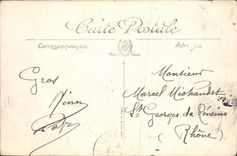 Carte Postale
Correspondance
Adresse
Gros
Monsieur
Marcel Michaudet
St Georges de Reneins
(Rhône)